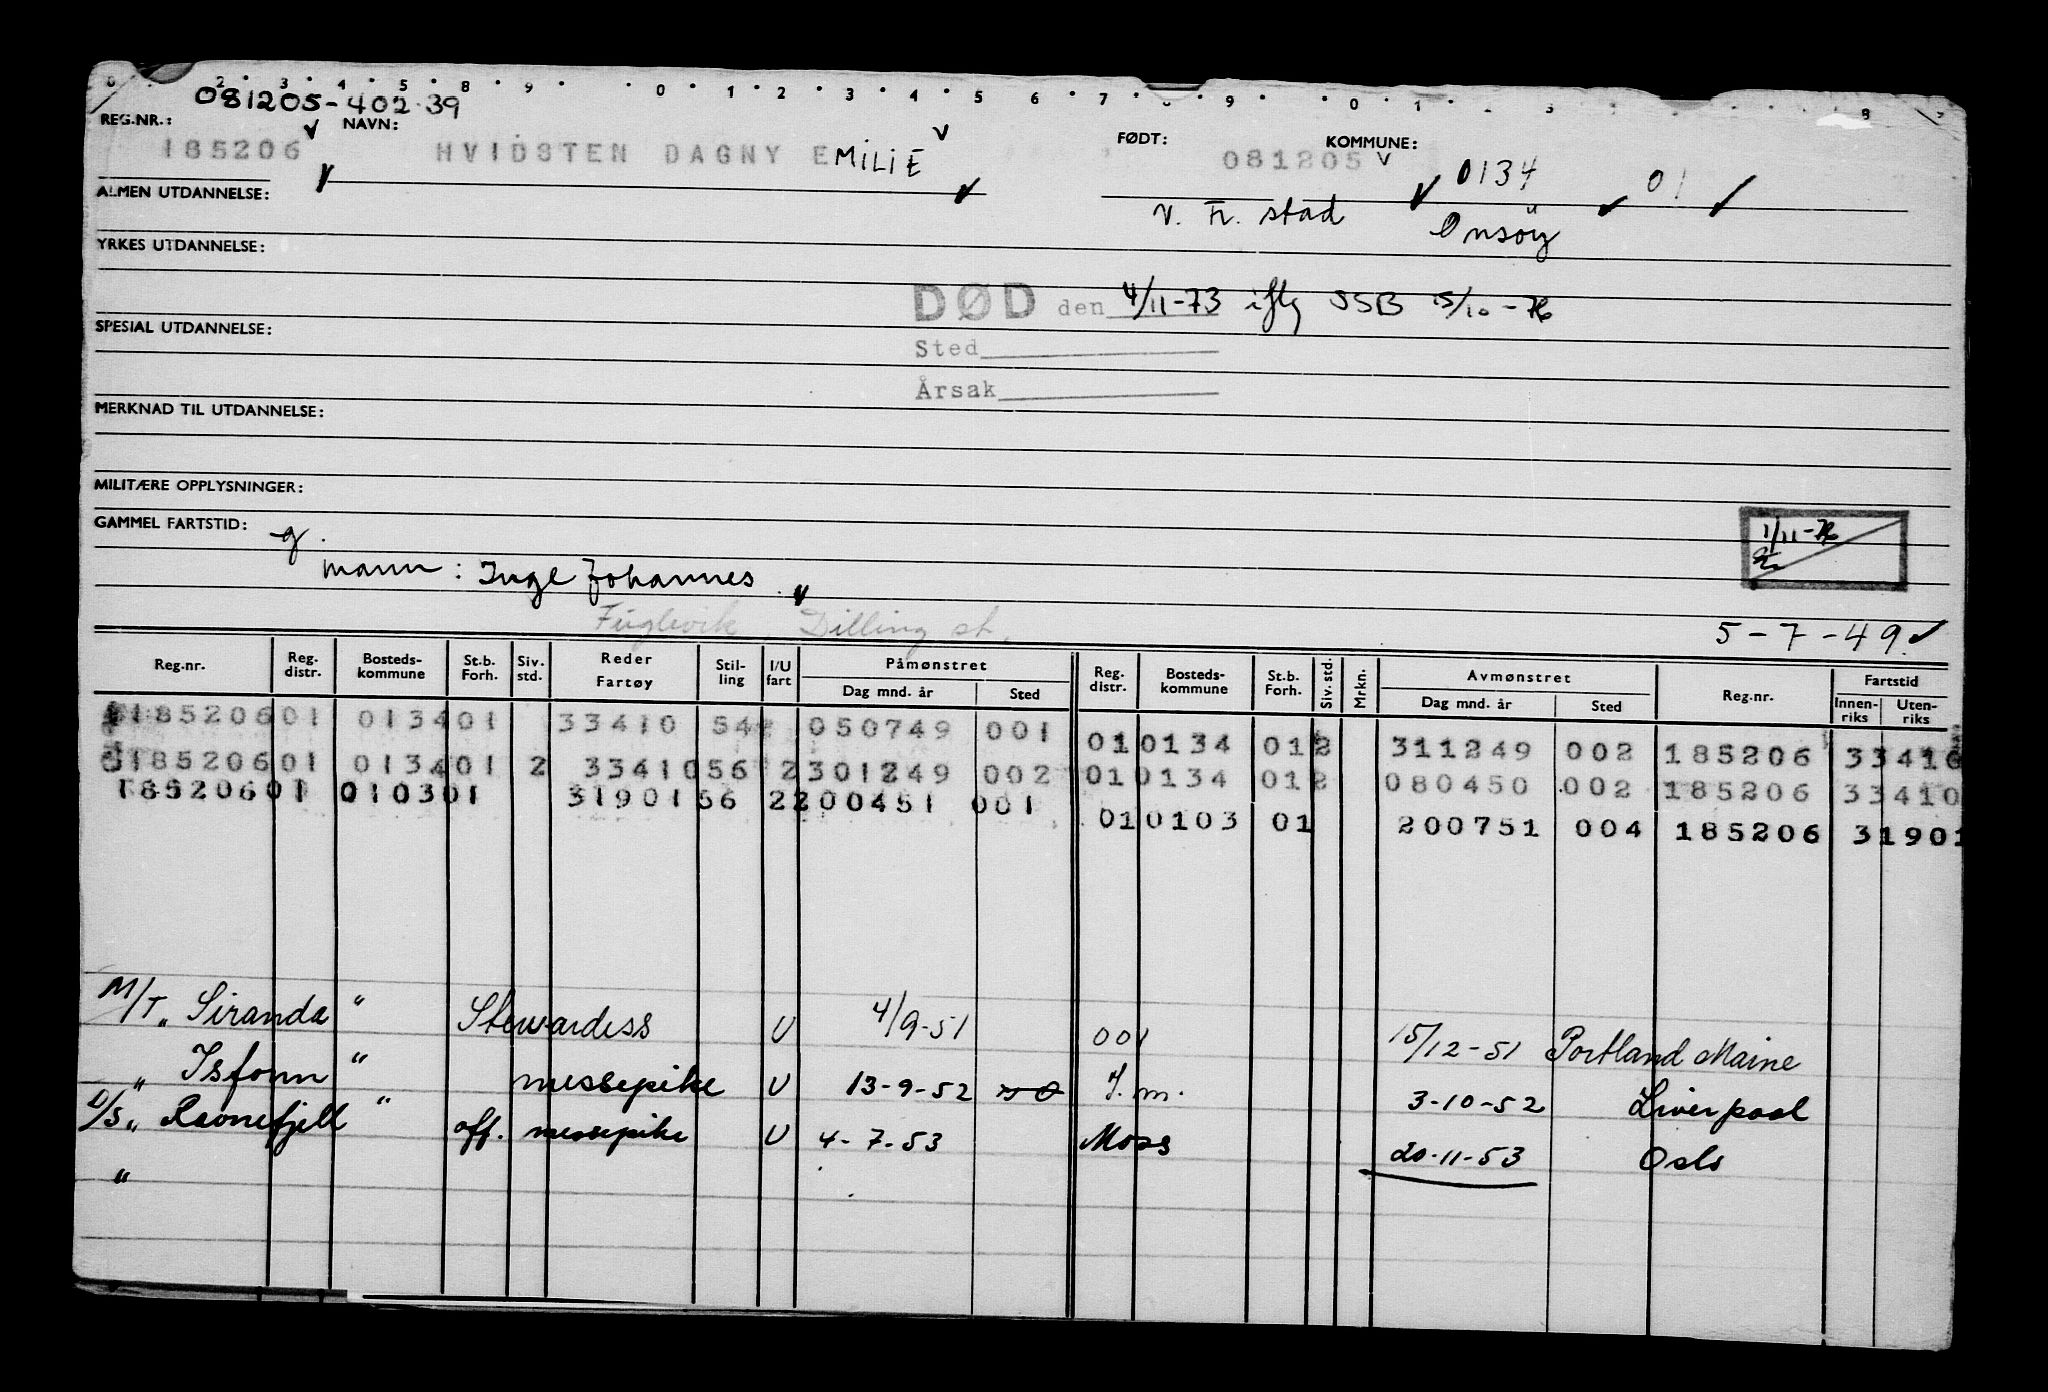 081205-402 39
REG.NR.: NAVN: FØDT: KOMMUNE:
185206 HVIDSTEN DAGNY EMILIE 081205 0134 01
ALMEN UTDANNELSE: v. Fr. stad Onsøy
YRKES UTDANNELSE:
DØD den 4/11-73 iflg SSB 15/10-76
SPESIAL UTDANNELSE:
Sted
Årsak
MERKNAD TIL UTDANNELSE:
MILITÆRE OPPLYSNINGER:
GAMMEL FARTSTID: g. 1/11-76
mann: Inge Johannes
Fuglevik, Dilling st.
5-7-49
Reg.nr. Reg. distr. Bosteds-kommune St.b. Forh. Siv. std. Reder Fartøy Stil-ling I/U fart Påmønstret Dag mnd. år Sted Reg. distr. Bosteds-kommune St.b. Forh. Siv. std. Mrkn. Avmønstret Dag mnd. år Sted Reg.nr. Fartstid Innen-riks Uten-riks
185206 01 0134 01 33410 54 050749 001 01 0134 01 2 311249 002 185206 33410
185206 01 0134 01 2 33410 56 2 301249 002 01 0134 01 2 080450 002 185206 33410
185206 01 0103 01 31901 56 2 200451 001 01 0103 01 200751 004 185206 31901
M/T „Siranda" Stewardess U 4/9-51 001 15/12-51 Portland Maine
„Isfonn" messepike U 13-9-52 F.m. 3-10-52 Liverpool
D/S „Ravnefjell" off. messepike U 4-7-53 Moss 20-11-53 Oslo
"